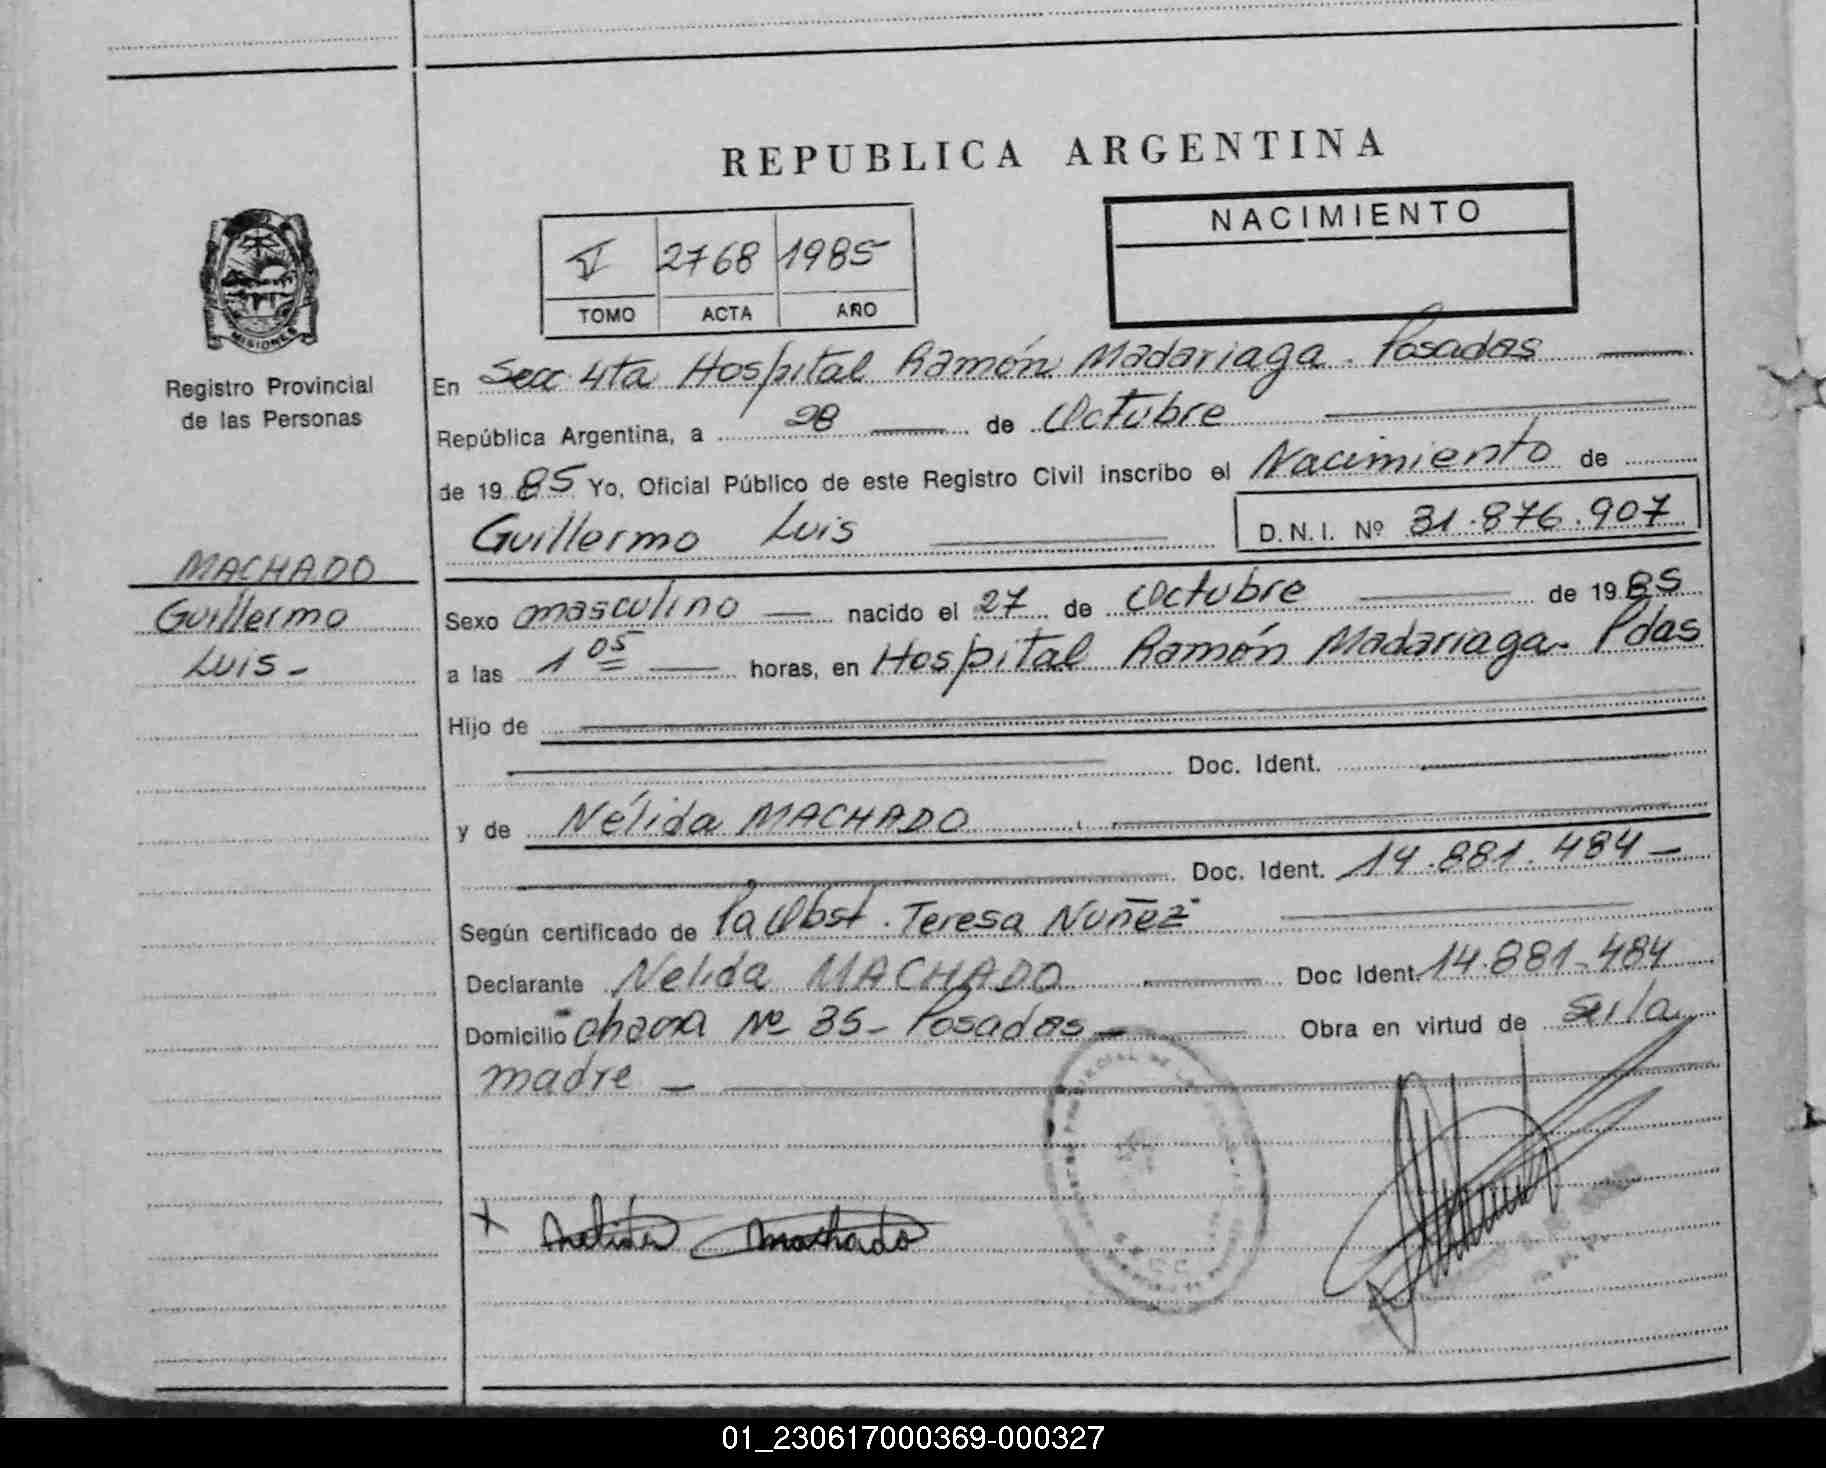 REPUBLICA ARGENTINA
NACIMIENTO
2768 1985
TOMO ACTA AÑO
MISIONES
Registro Provincial
de las Personas
En Secc 4ta Hospital Ramón Madariaga. Posadas
República Argentina, a 28 de Octubre
de 1985 Yo, Oficial Público de este Registro Civil inscribo el Nacimiento de
Guillermo Luis D.N.I. Nº 31.876.907
MACHADO
Guillermo
Luis -
Sexo masculino nacido el 27 de Octubre de 1985
a las 1 05 horas, en Hospital Ramón Madariaga. Pdas
Hijo de
Doc. Ident.
y de Nélida MACHADO
Doc. Ident. 14.881.484 -
Según certificado de Obst. Teresa Nuñez
Declarante Nelida MACHADO Doc Ident. 14.881.484
Domicilio chacra Nº 35 - Posadas - Obra en virtud de ser la
madre -
x Nelida Machado
01_230617000369-000327